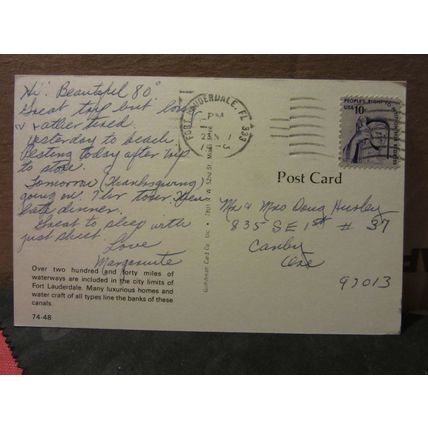 Hi! Beautiful 80°
Great trip but long
& rather tired.
Yesterday to beach
Resting today after trip
to store.
Tomorrow (Thanksgiving)
going on 7 hr tour then
late dinner.
Great to sleep with
just sheet.
Love
Marguerite
Over two hundred and forty miles of
waterways are included in the city limits of
Fort Lauderdale. Many luxurious homes and
water craft of all types line the banks of these
canals.
74-48
FORT LAUDERDALE, FL 333
PM
23
PEOPLE'S RIGHT TO
USA
10c
Post Card
Mr & Mrs Doug Hurley
835 SE 1st # 37
Canby
Ore
97013